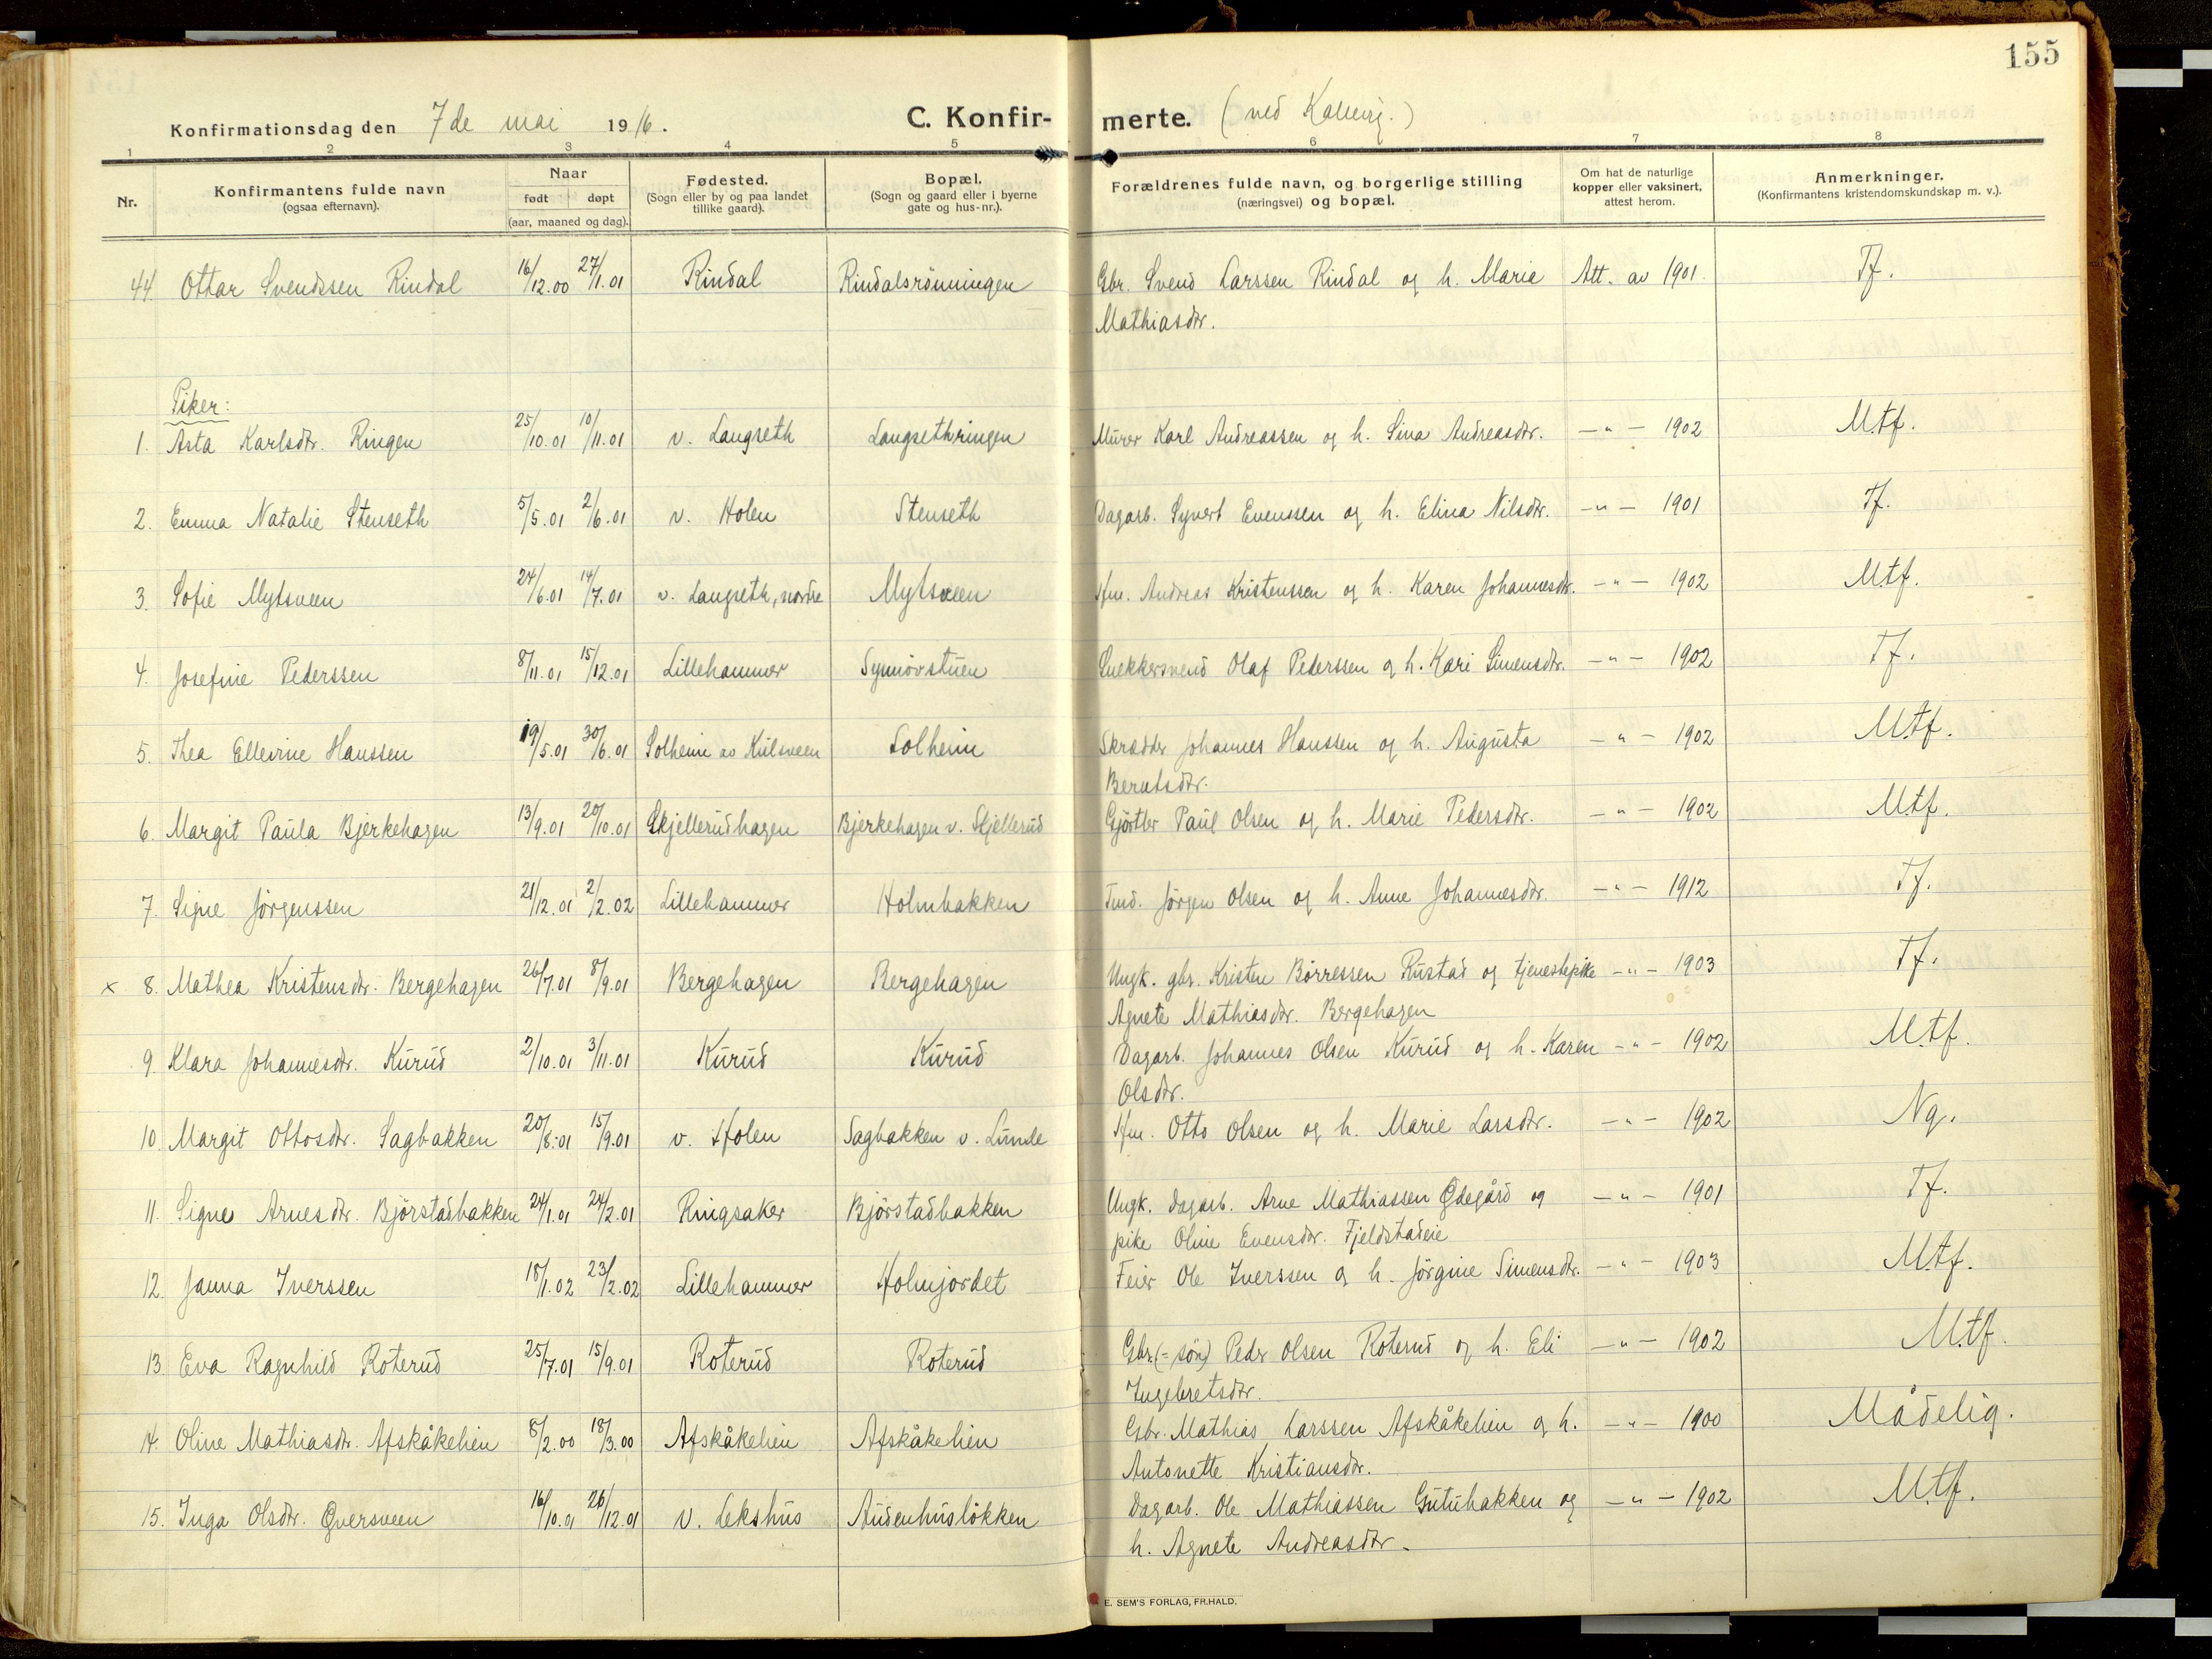 155
Konfirmationsdag den 7de mai 1916. C. Konfirmerte. (ved
1 2 3 4 5 6 7 8
Nr. Konfirmantens fulde navn (ogsaa efternavn). Naar født døpt (aar, maaned og dag). Fødested. (Sogn eller by og paa landet tillike gaard). Bopæl. (Sogn og gaard eller i byerne gate og hus-nr.). Forældrenes fulde navn, og borgerlige stilling (næringsvei) og bopæl. Om hat de naturlige kopper eller vaksinert, attest herom. Anmerkninger. (Konfirmantens kristendomskundskap m. v.).
44 Ottar Svendssen Rindal 16/12.00 27/1.01 Rindal Rindalsrönningen Gbr. Svend Larssen Rindal og h. Marie Att. av 1901. Tf.
Mathiasdtr.
Piker:
1. Asta Karlsdtr. Ringen 25/10.01 10/11.01 v. Langseth Langsethringen Murer Karl Andreassen og h. Sina Andreasdtr. -"- 1902 Mtf.
2. Emma Natalie Stenseth 5/5.01 2/6.01 v. Holen Stenseth Dagarb. Syvert Evenssen og h. Elina Nilsdtr. -"- 1901 Tf.
3. Sofie Mytsveen 24/6.01 14/7.01 v. Langseth, nordre Mytsveen Hm. Andreas Kristenssen og h. Karen Johannesdtr. -"- 1902 Mtf.
4. Josefine Pederssen 8/11.01 15/12.01 Lillehammer Synnövstuen Snekkersvend Olaf Pederssen og h. Kari Simensdtr. -"- 1902 Tf.
5. Thea Ellevine Hanssen 19/5.01 30/6.01 Solheim av Kulsveen Solheim Skrædder Johannes Hanssen og h. Augusta -"- 1902 Mtf.
Berntsdtr.
6. Margit Paula Bjerkehagen 13/9.01 20/10.01 Skjellerudhagen Bjerkehagen v. Skjellerud Gjörtler Paul Olsen og h. Marie Pedersdtr. -"- 1902 Mtf.
7. Signe Jörgenssen 21/12.01 2/2.02 Lillehammer Holmbakken Tmd. Jörgen Olsen og h. Anne Johannesdtr. -"- 1912 Tf.
x 8. Mathea Kristensdtr. Bergehagen 26/7.01 8/9.01 Bergehagen Bergehagen Ungk. gbr. Kristen Börressen Rustad og tjenestepike -"- 1903 Tf.
Agnete Mathiasdtr. Bergehagen
9. Klara Johannesdtr. Kurud 2/10.01 3/11.01 Kurud Kurud Dagarb. Johannes Olsen Kurud og h. Karen -"- 1902 Mtf.
Olsdtr.
10. Margit Ottosdtr. Sagbakken 20/8.01 15/9.01 v. Holen Sagbakken v. Lunde Hm. Otto Olsen og h. Marie Larsdtr. -"- 1902 Ng.
11. Signe Arnesdtr. Björstadbakken 24/1.01 24/2.01 Ringsaker Björstadbakken Ungk. dagarb. Arne Mathiassen Ödegård og -"- 1901 Tf.
pike Oline Evensdtr. Fjeldstadeie
12. Janna Iverssen 18/1.02 23/2.02 Lillehammer Holmjordet Feier Ole Iverssen og h. Jörgine Simensdtr. -"- 1903 Mtf.
13. Eva Ragnhild Roterud 25/7.01 15/9.01 Roterud Roterud Gbr. (= sön) Peder Olsen Roterud og h. Eli -"- 1902 Mtf.
Ingebretsdtr.
14. Oline Mathiasdtr. Afskåkelien 8/2.00 18/3.00 Afskåkelien Afskåkelien Gbr. Mathias Larssen Afskåkelien og h. -"- 1900 Mådelig.
Antonette Kristiansdtr.
15. Inga Olsdtr. Qversveen 16/10.01 26/12.01 v. Lekshus Audenhuslökken Dagarb. Ole Mathiassen Gutubakken og -"- 1902 Mtf.
h. Agnete Andreasdtr.
E. SEM'S FORLAG, FR.HALD.